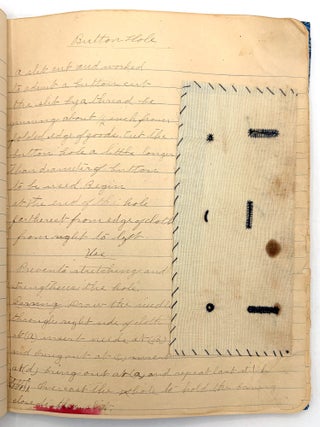 Button Hole
a slit cut and worked
to admit a button cut
the slit by a thread be
running about ¼ inch from
folded edge of goods. Cut the
button hole a little longer
than diameter of button
to be used. Begin
at the end of the hole
fartherest from edge of cloth
from right to left
Use
Prevents stretching and
strengthens the hole.
draw the needle
through right side of cloth
at (a) insert needle at (b)
and bring out at c, insert
at d, bring out at (a, and repeat last st
Overcast the whole to hold the